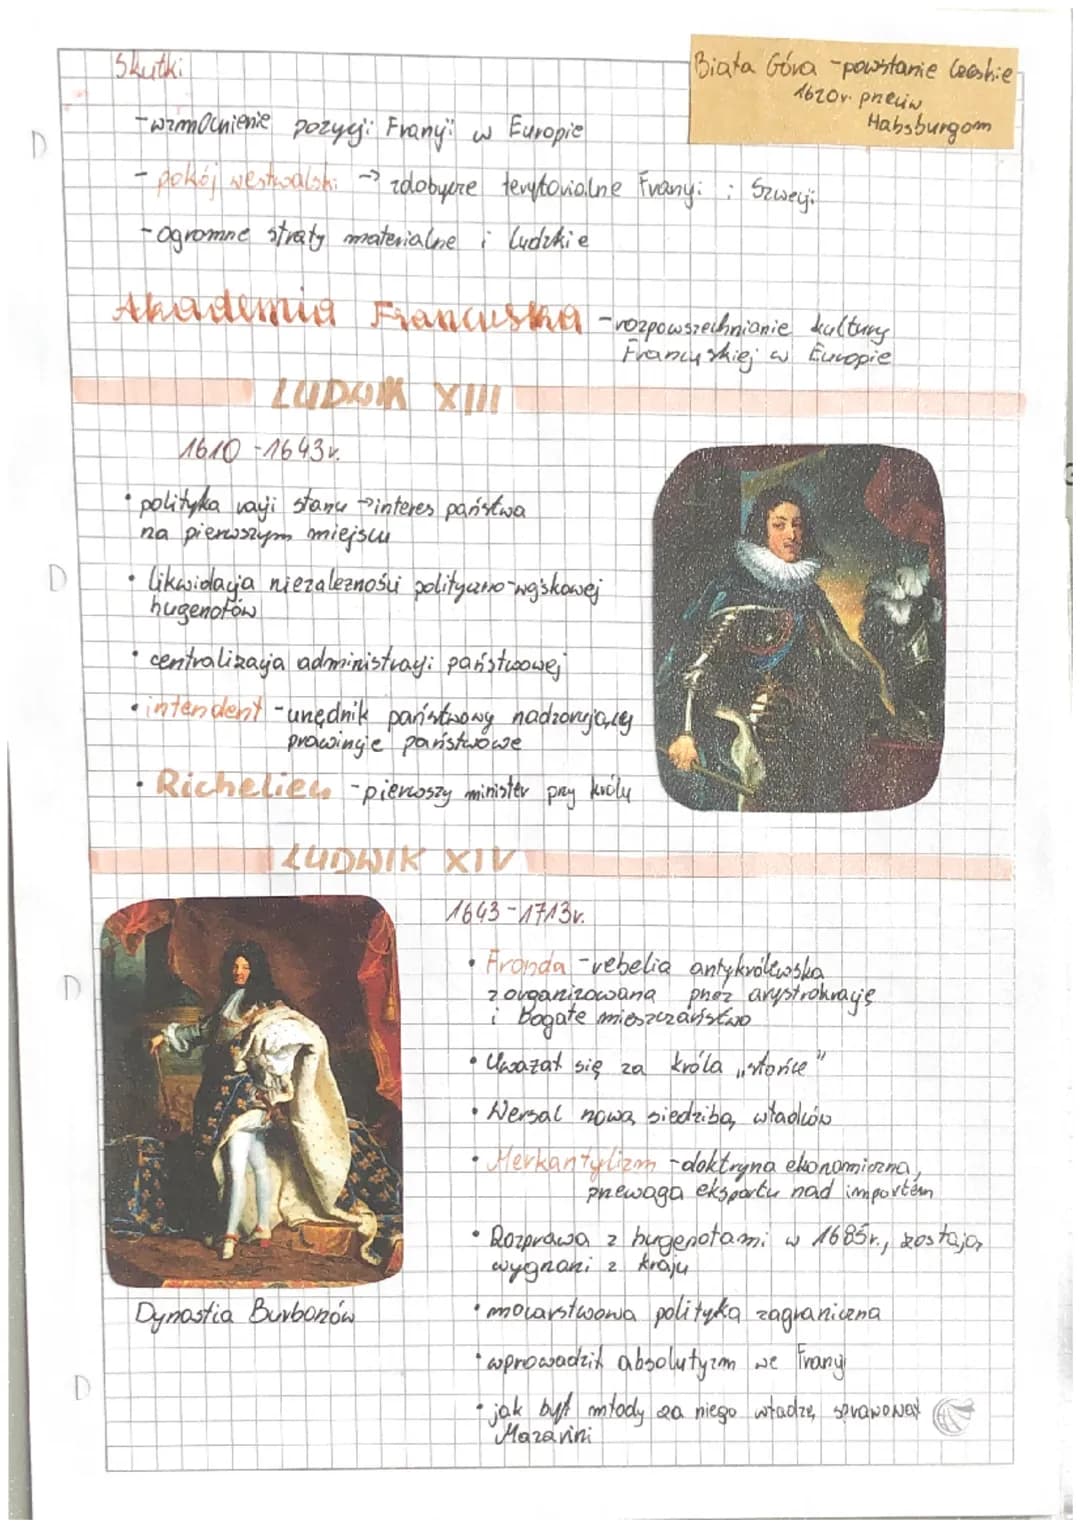 Skutki
Biała Góra - powstanie czeskie
1620r. przeciw
Habsburgom
- wzmocnienie pozycji Francji w Europie
- pokój westwalski → zdobycze terytorialne Francji i Szwecji
- ogromne straty materialne i ludzkie
Akademia Francuska - rozpowszechnianie kultury
Francuskiej w Europie
LUDWIK XIII
1610 - 1643r.
• polityka racji stanu → interes państwa
na pierwszym miejscu
• likwidacja niezależności polityczno-wojskowej
hugenotów
• centralizacja administracji państwowej
• intendent - urzędnik państwowy nadzorujący
prowincje państwowe
• Richelieu - pierwszy minister przy królu
LUDWIK XIV
1643 - 1713r.
• Fronda - rebelia antykrólewska
zorganizowana przez arystrokrację
i bogate mieszczaństwo
• Uważał się za króla „słońce"
• Wersal nową siedzibą władców
• Merkantylizm - doktryna ekonomiczna,
przewaga eksportu nad importem
• Rozprawa z hugenotami w 1685r., zostają
wygnani z kraju
• mocarstwowa polityka zagraniczna
• wprowadził absolutyzm we Francji
• jak był młody za niego władzę sprawował
Mazarini
Dynastia Burbonów